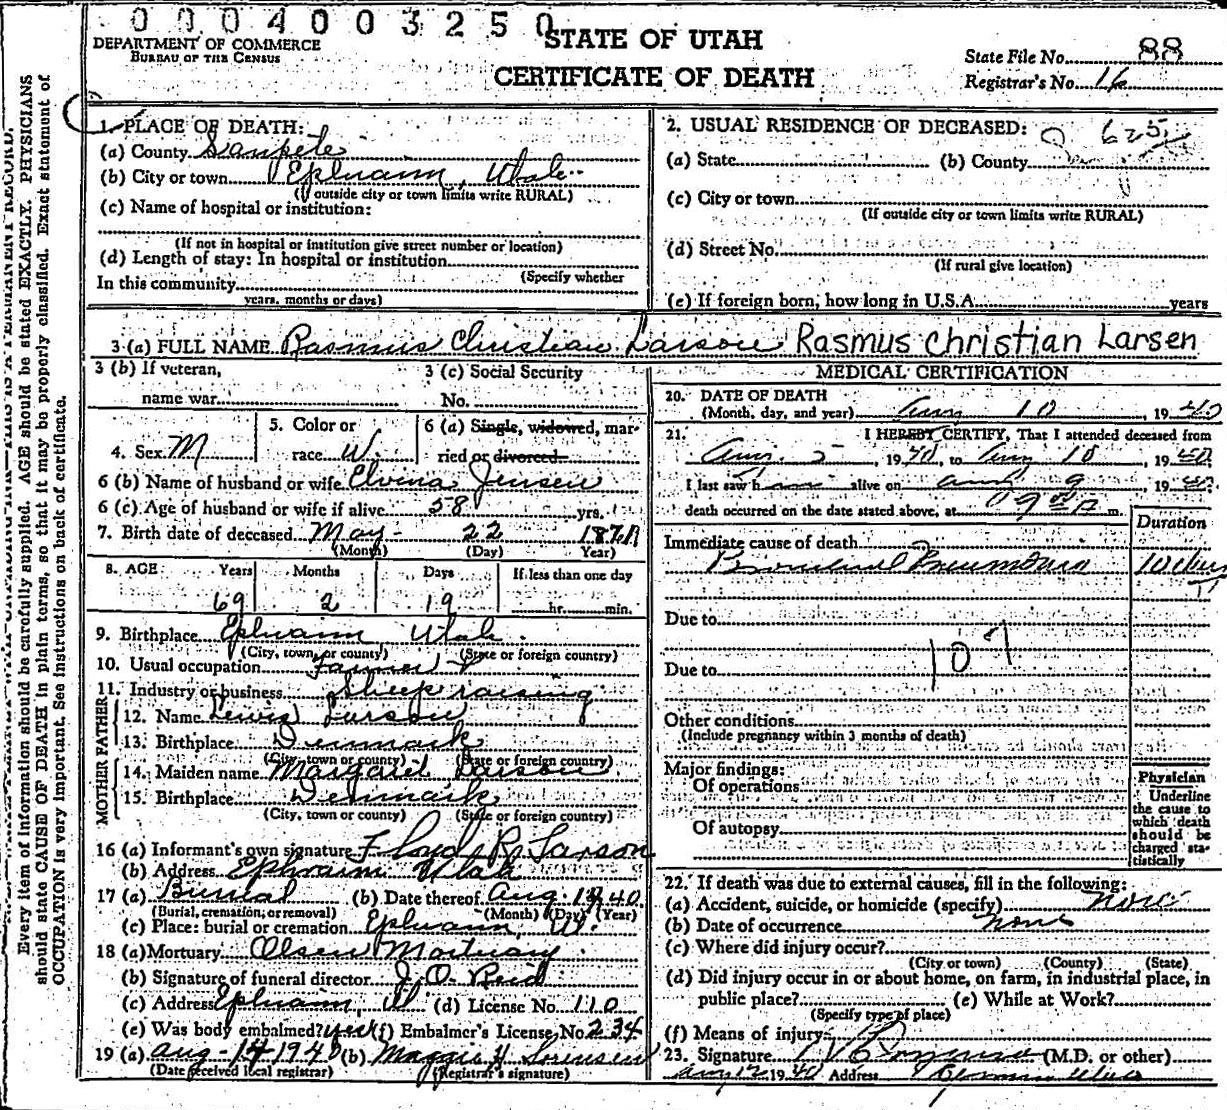 0004003250
DEPARTMENT OF COMMERCE
BUREAU OF THE CENSUS
STATE OF UTAH
CERTIFICATE OF DEATH
State File No. 88
Registrar's No. 16
Every item of information should be carefully supplied. AGE should be stated EXACTLY. PHYSICIANS
should state CAUSE OF DEATH in plain terms, so that it may be properly classified. Exact statement of
OCCUPATION is very important. See instructions on back of certificate.
1. PLACE OF DEATH:
(a) County Sanpete
(b) City or town Ephraim, Utah
(If outside city or town limits write RURAL)
(c) Name of hospital or institution:
(If not in hospital or institution give street number or location)
(d) Length of stay: In hospital or institution
(Specify whether
In this community
years, months or days)
2. USUAL RESIDENCE OF DECEASED: 625
(a) State (b) County
(c) City or town
(If outside city or town limits write RURAL)
(d) Street No.
(If rural give location)
(e) If foreign born, how long in U.S.A. years
3 (a) FULL NAME Rasmus Christian Larson Rasmus Christian Larsen
3 (b) If veteran,
name war
3 (c) Social Security
No.
4. Sex M
5. Color or
race W.
6 (a) Single, widowed, mar-
ried or divorced
6 (b) Name of husband or wife Elvina Jensen
6 (c) Age of husband or wife if alive 58 yrs.
7. Birth date of deceased May 22 1871
(Month) (Day) Year)
8. AGE Years Months Days If less than one day
69 2 19 hr. min.
9. Birthplace Ephraim Utah.
(City, town, or county) (State or foreign country)
10. Usual occupation Farmer &
11. Industry or business Sheep raising
FATHER
12. Name Lewis Larson
13. Birthplace Denmark
(City, town or county) (State or foreign country)
MOTHER
14. Maiden name Margaret Larson
15. Birthplace Denmark
(City, town or county) (State or foreign country)
16 (a) Informant's own signature Floyd R. Larson
(b) Address Ephraim Utah
17 (a) Burial (b) Date thereof Aug. 40
(Burial, cremation, or removal) (Month) (Day) (Year)
(c) Place: burial or cremation Ephraim, Ut.
18 (a) Mortuary Olsen Mortuary
(b) Signature of funeral director J. O. Reid
(c) Address Ephraim, Ut (d) License No. 110
(e) Was body embalmed? yes (f) Embalmer's License No. 234
19 (a) Aug-14-1940 (b) Maggie H Sorensen
(Date received local registrar) (Registrar's signature)
MEDICAL CERTIFICATION
20. DATE OF DEATH
(Month, day, and year) Aug 10, 1940
21. I HEREBY CERTIFY, That I attended deceased from
Aug. 5, 1940, to Aug 10, 1940.
I last saw him alive on Aug 9, 1940.
death occurred on the date stated above, at 9 00 A m.
Duration
Immediate cause of death
Bronchial Pneumonia
Due to
107
Due to
Other conditions
(Include pregnancy within 3 months of death)
Major findings:
Of operations
Of autopsy
Physician
Underline
the cause to
which death
should be
charged sta-
tistically
22. If death was due to external causes, fill in the following:
(a) Accident, suicide, or homicide (specify) none
(b) Date of occurrence none
(c) Where did injury occur?
(City or town) (County) (State)
(d) Did injury occur in or about home, on farm, in industrial place, in
public place? (e) While at Work?
(Specify type of place)
(f) Means of injury
23. Signature (M.D. or other)
Aug 12 1940 Address Ephraim Utah